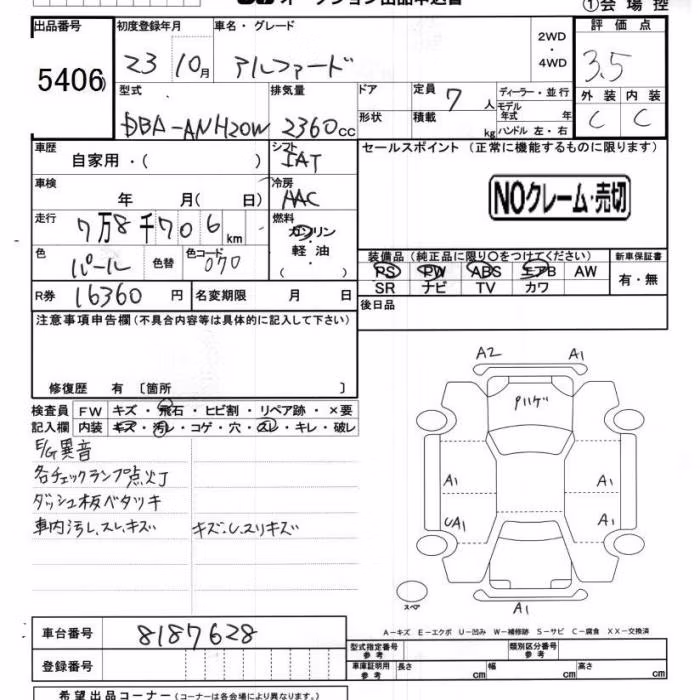 ①会場控
出品番号 5406
初度登録年月 23 10月
車名・グレード アルファード
2WD・4WD
評価点 3.5
型式 DBA-ANH20W
排気量 2360cc
ドア
形状
定員 7 人
積載 kg
ディーラー・並行
モデル年式 年
ハンドル 左・右
外装 C 内装 C
車歴 自家用・( )
シフト IAT
セールスポイント (正常に機能するものに限ります)
車検 年 月( 日)
冷房 AAC
NOクレーム・売切
走行 7万8千706km
燃料 ガソリン・軽油・( )
色 パール 色替 色コード 070
装備品(純正品に限り○をつけてください)
PS PW ABS エアB AW
SR ナビ TV カワ
新車保証書 有・無
R券 16360円 名変期限 月 日
後日品
注意事項申告欄(不具合内容等は具体的に記入して下さい)
修復歴 有 〔箇所 〕
検査員記入欄
FW キズ・飛石・ヒビ割・リペア跡・×要
内装 キズ・汚レ・コゲ・穴・スレ・キレ・破レ
E/G異音
各チェックランプ点灯
ダッシュ板ベタツキ
車内汚レ、スレ、キズ キズ、しスリキズ
A2 A1
Pハゲ
A1 A1
UA1 A1
スペア A1
A-キズ E-エクボ U-凹み W-補修跡 S-サビ C-腐食 XX-交換済
車台番号 8187628
登録番号
型式指定番号 参考 類別区分番号 参考
車庫証明用 参考 長さ cm 幅 cm 高さ cm
希望出品コーナー(コーナーは各会場により異なります。)